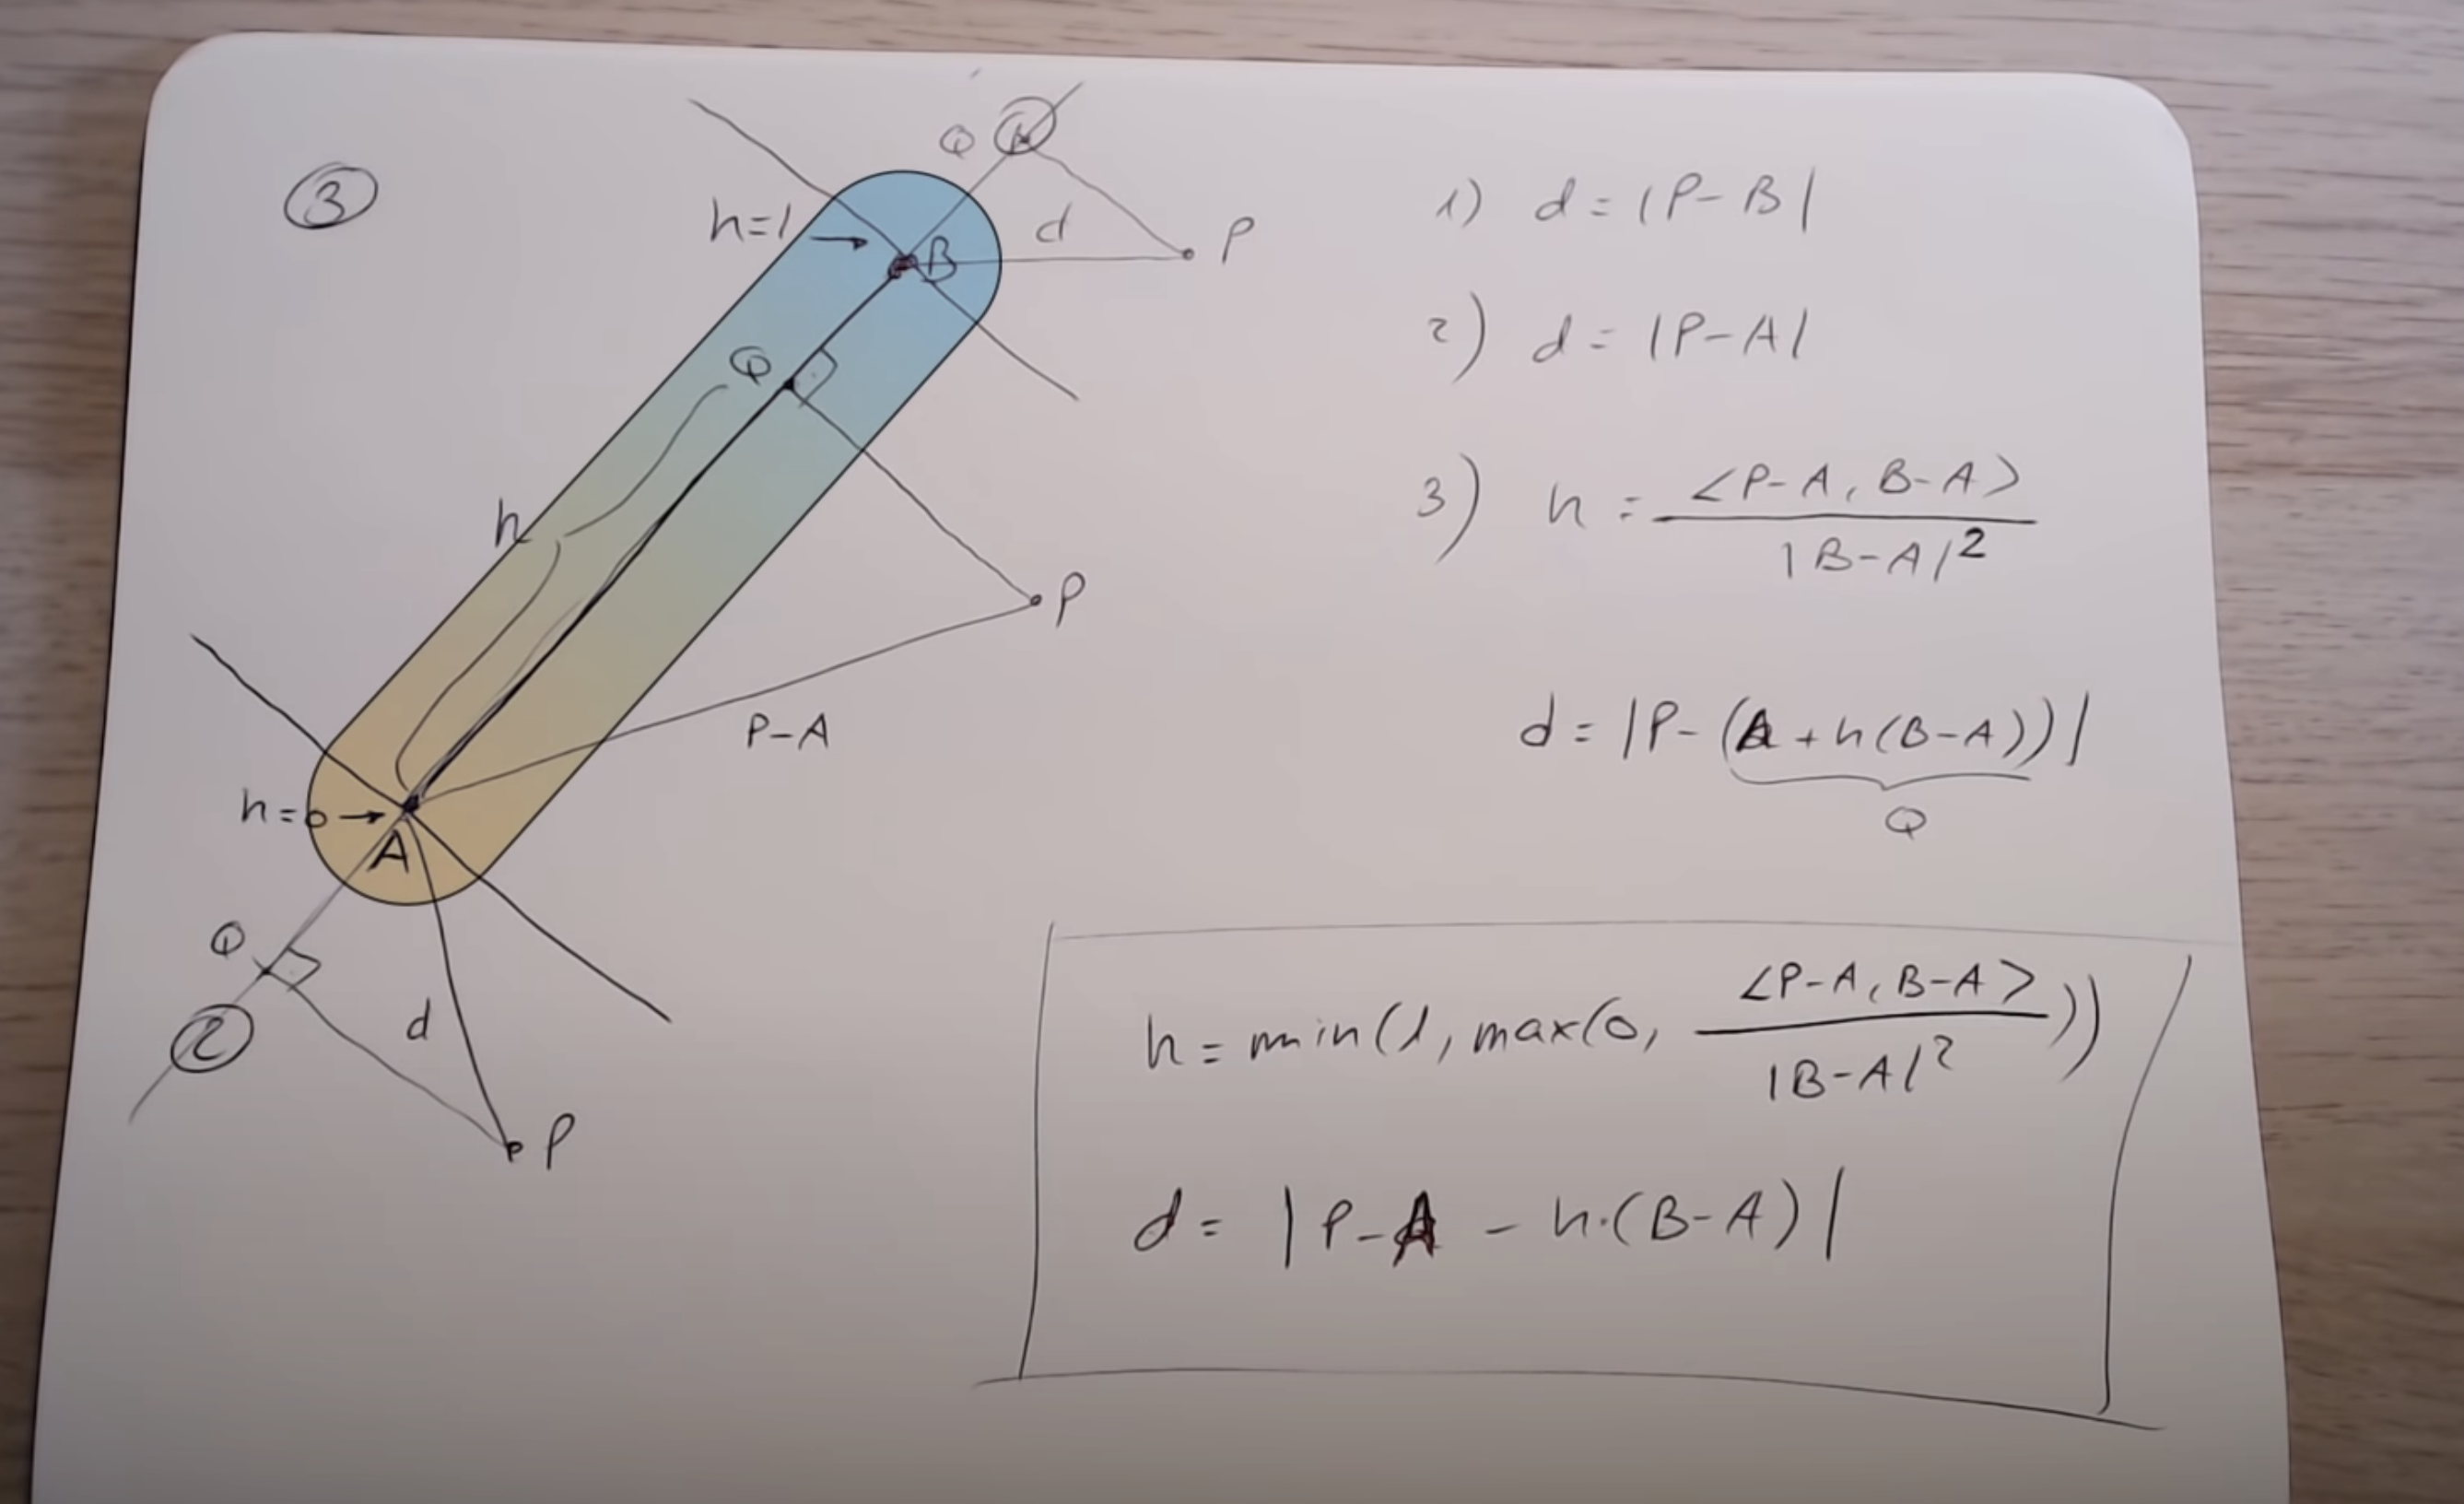 3
Q 1
h=1
B
d
P
Q
h
P
P-A
h=0
A
Q
2
d
P
1) d = |P-B|
2) d = |P-A|
3) h = <P-A, B-A>
|B-A|²
d = |P-(A+h(B-A))|
Q
h = min(1, max(0, <P-A, B-A>
|B-A|² ))
d = |P-A - h·(B-A)|